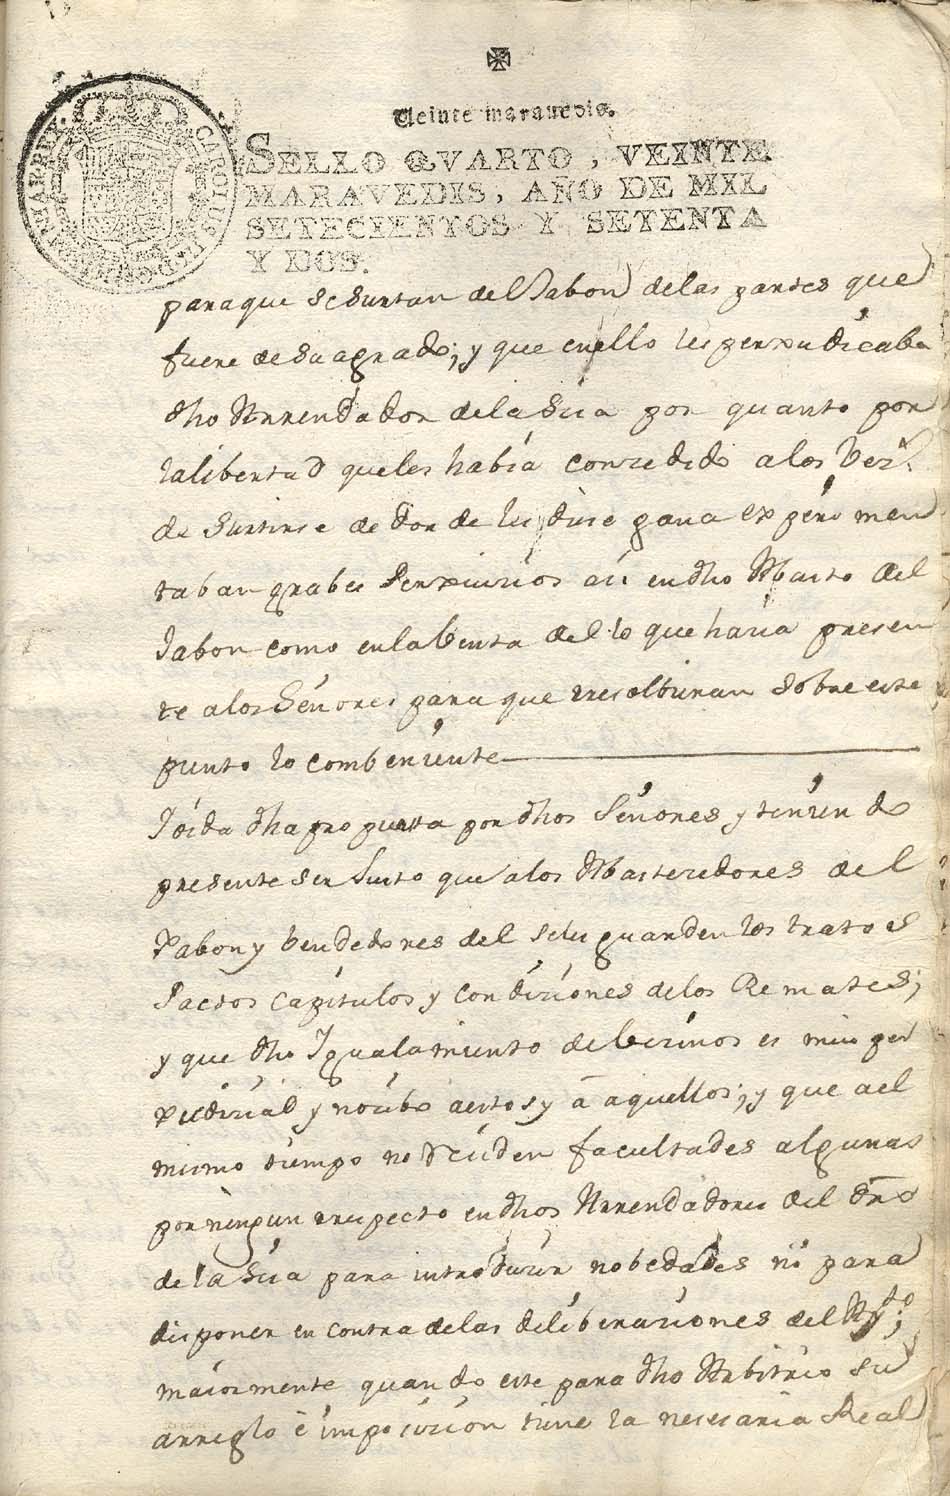 Veinte maravedis.
SELLO QVARTO, VEINTE
MARAVEDIS, AÑO DE MIL
SETECIENTOS Y SETENTA
Y DOS.
CAROLUS III D G HISP
paraque se surtan del Jabon de las partes que
fuere de su agrado; y que en ello les perxudicaba
dho Arrendador dela Sisa por quanto por
la libertad que les habia concedido a los Vezs.
de surtirse de donde les
taban grabes Perxuicios asi en dho Abasto del
Jabon como en la Venta del lo que hacia presen
te alos Señores para que resolbieran sobre este
punto lo combeniente
Ioida dha propuesta por dhos Señores y teniendo
presente ser Justo que alos Abastezedores del
Xabon y bendedores del se les guarden los tratos
Pactos Capitulos y Condiciones delos Remates;
y que dho Igualamiento de Vecinos es mui per
xudicial y nocibo aestos y á aquellos; y que a el
mismo tiempo no residen facultades algunas
por ningun respecto en dhos Arrendadores del dro
de la Sisa para introducir nobedades ni para
disponer en contra delas deliberaciones del Ayto;
maiormente quando este para dho Arbitrio su
arreglo é imposicion tiene la necesaria Real